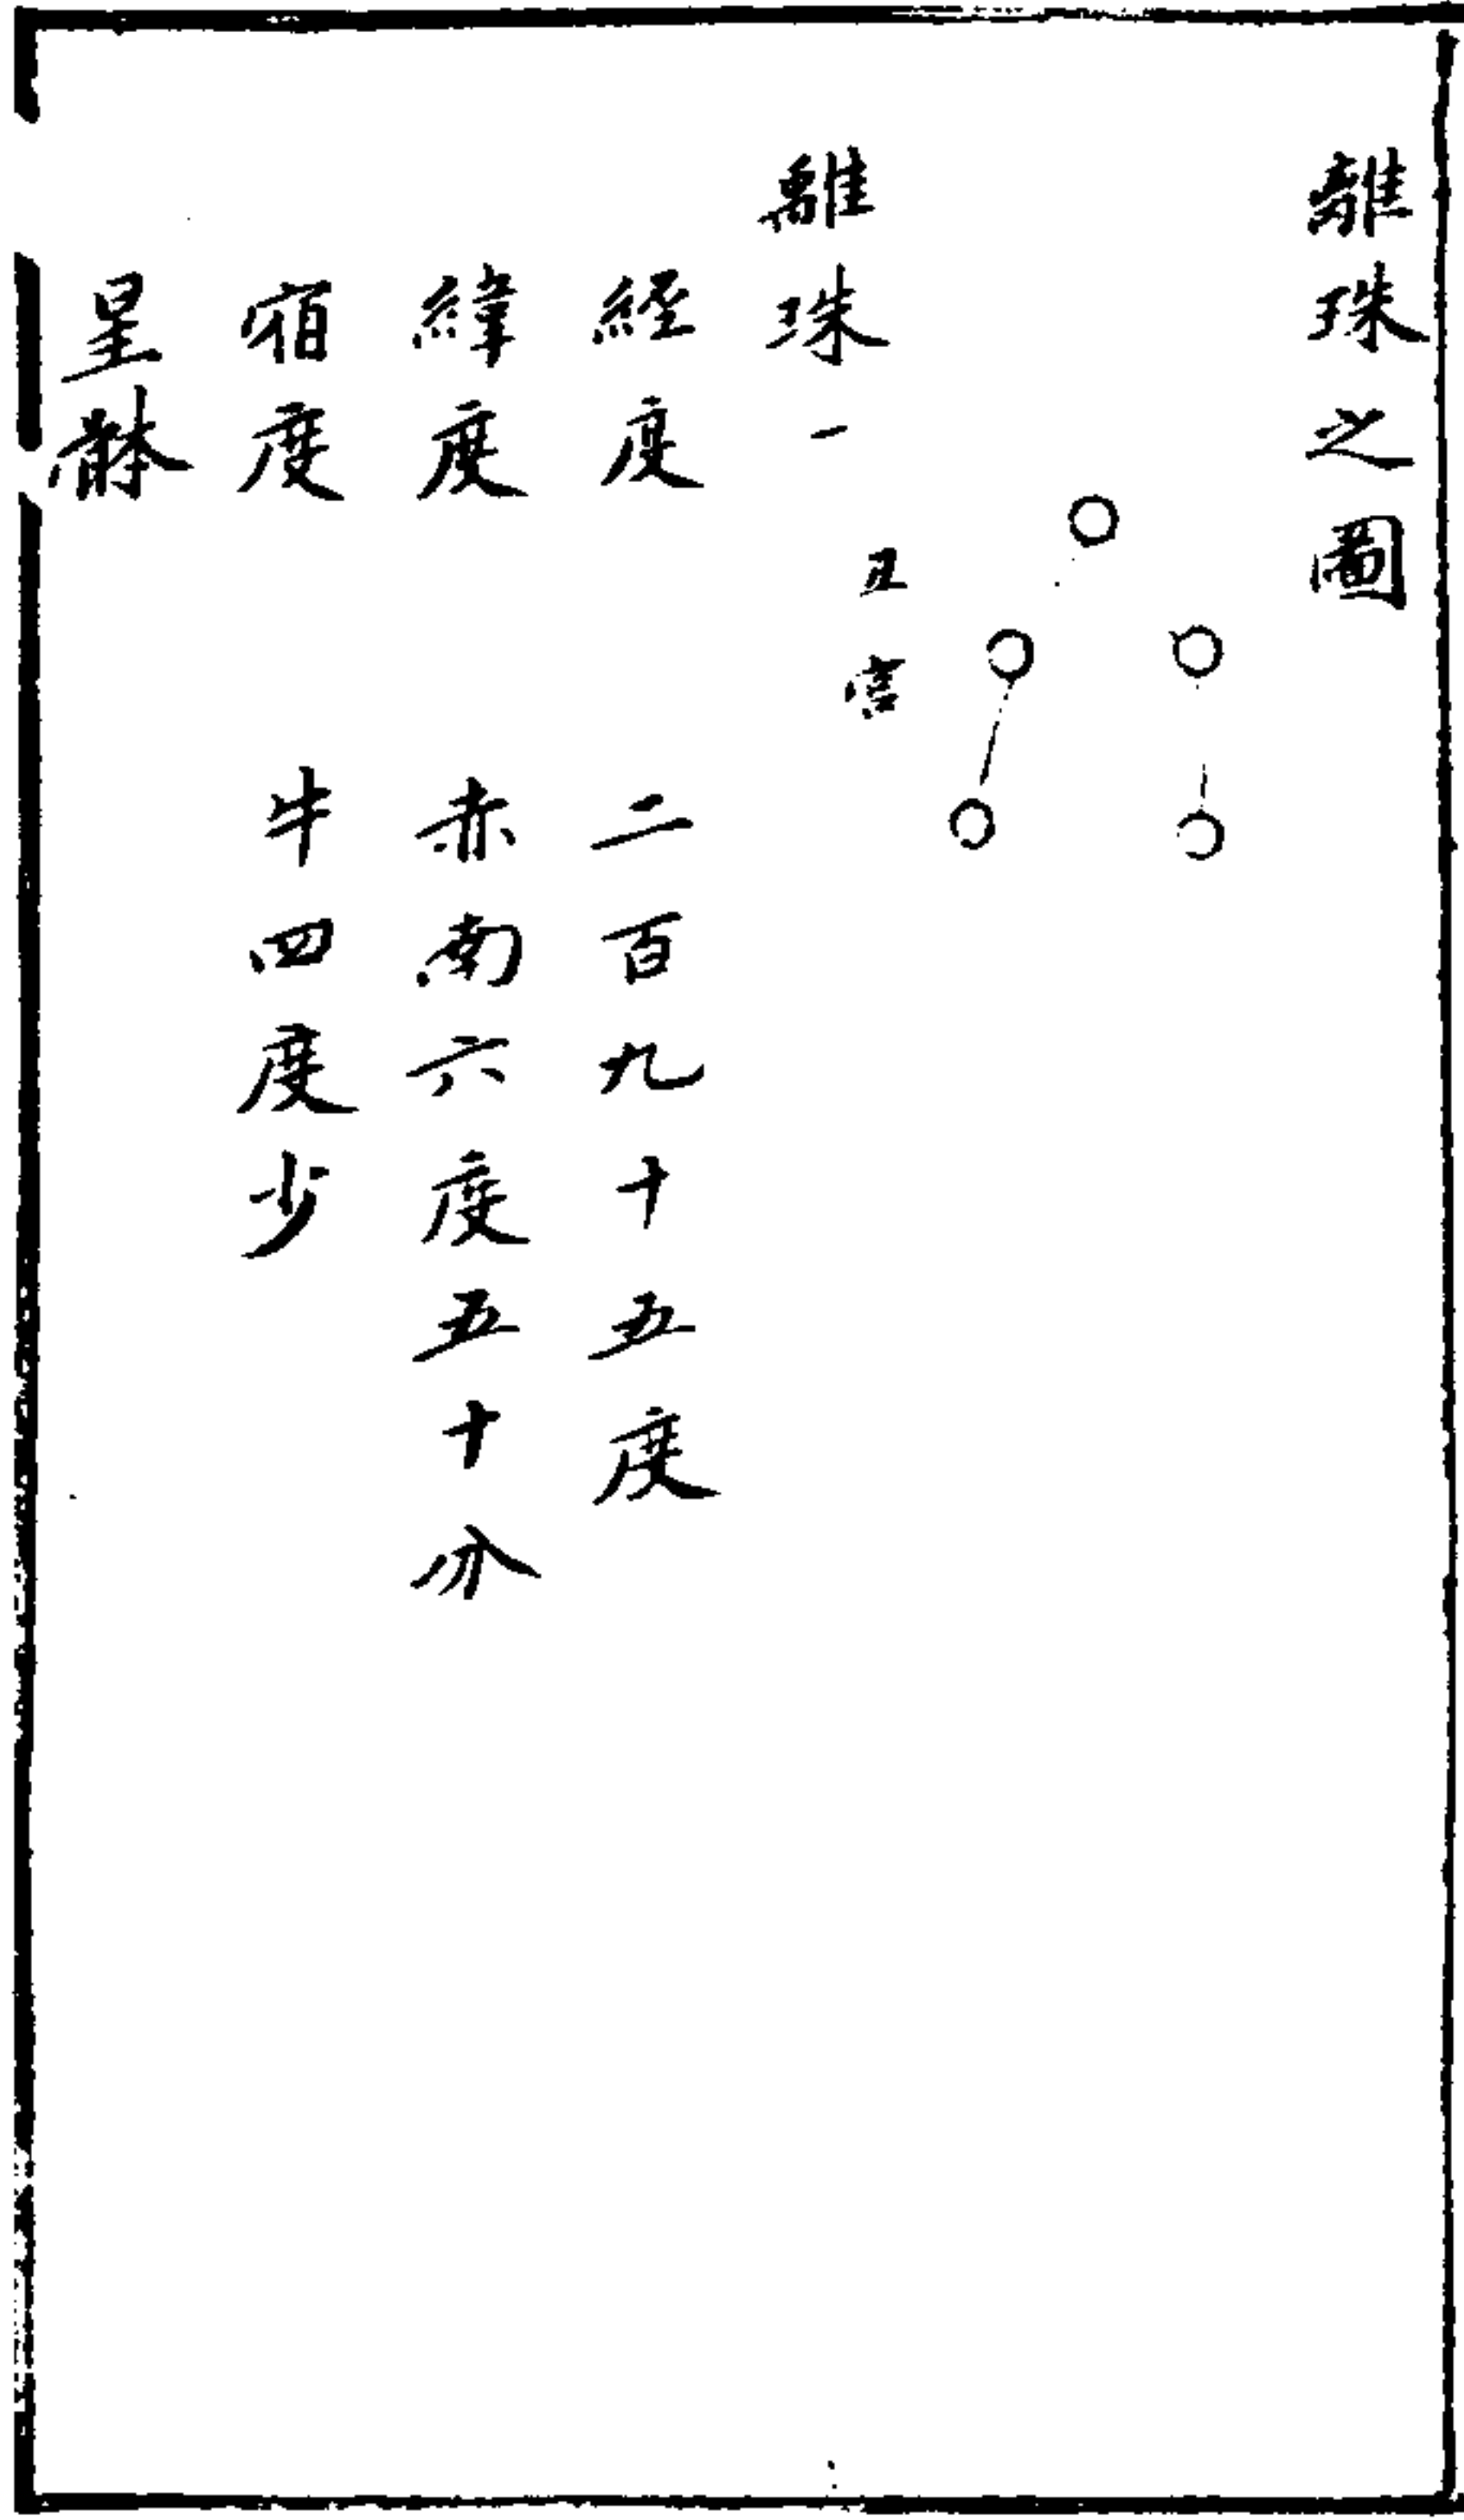 離珠之圖
離珠一
丑宮
經度 二百九十五度
緯度 赤南六度五十分
宿度 牛四度少
星辨